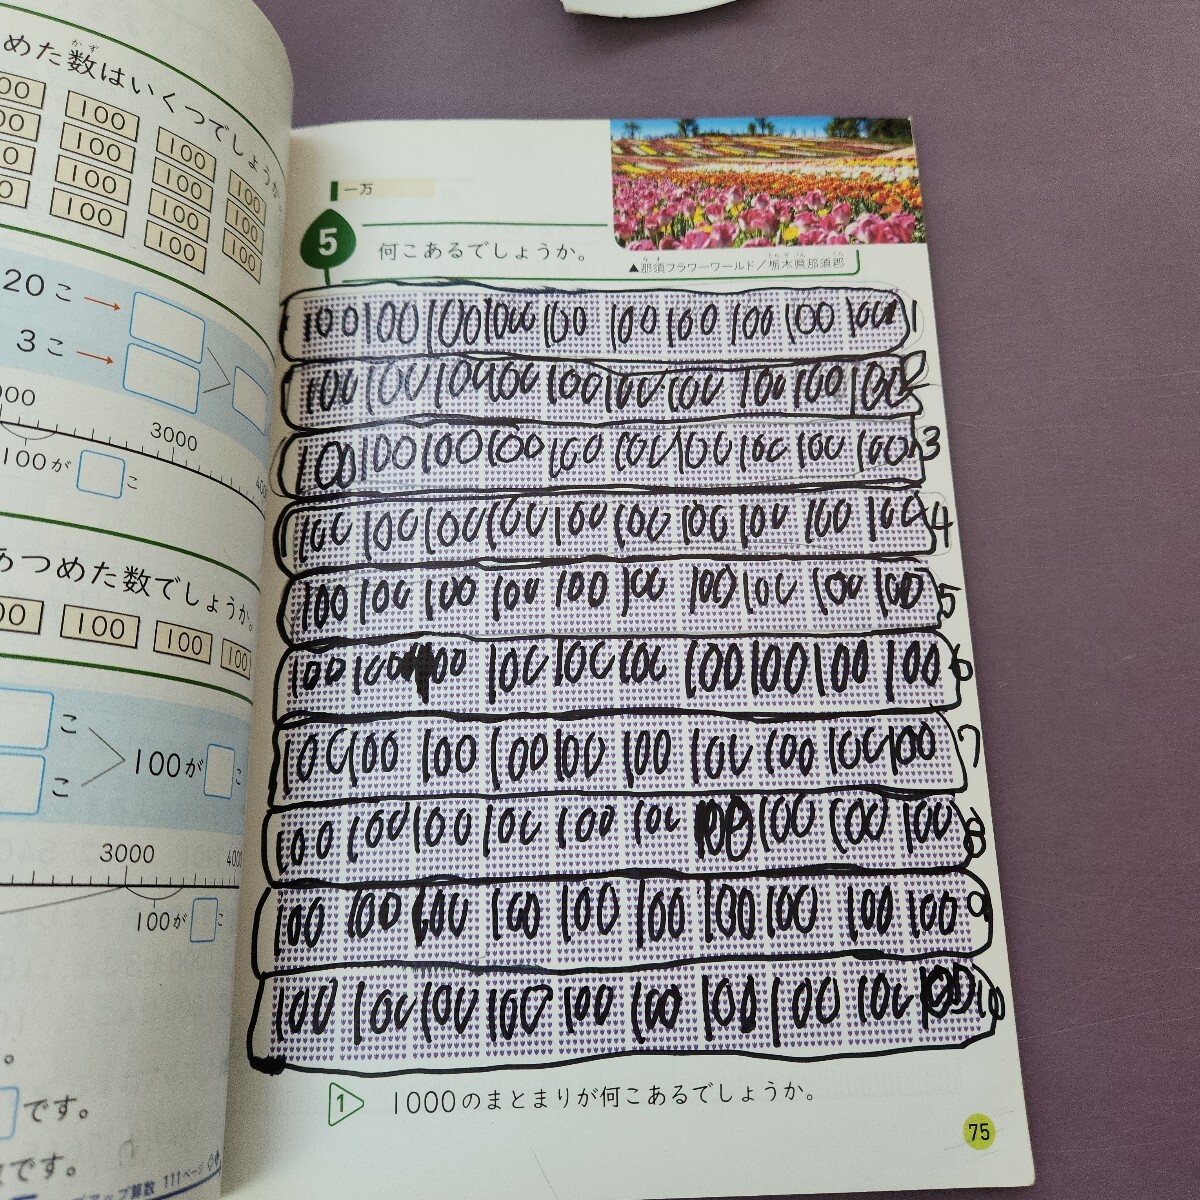 めた数はいくつでしょうか。
かず
00 100 100 100
00 100 100 100
0 100 100 100
0 100 100 100
20こ
3こ
000
3000
400
100が こ
あつめた数でしょうか。
00 100 100 100
こ
こ
100が こ
3000
4000
100が こ
。
です。
です。
アップ算数 111ページ
一万
5
何こあるでしょうか。
▲那須フラワーワールド/栃木県那須郡
100 100 100 100 100 100 100 100 100 100 1
100 100 100 100 100 100 100 100 100 100 2
100 100 100 100 100 100 100 100 100 100 3
100 100 100 100 100 100 100 100 100 100 4
100 100 100 100 100 100 100 100 100 100 5
100 100 100 100 100 100 100 100 100 100 6
100 100 100 100 100 100 100 100 100 100 7
100 100 100 100 100 100 100 100 100 100 8
100 100 100 100 100 100 100 100 100 100 9
100 100 100 100 100 100 100 100 100 100 10
1 1000のまとまりが何こあるでしょうか。
75